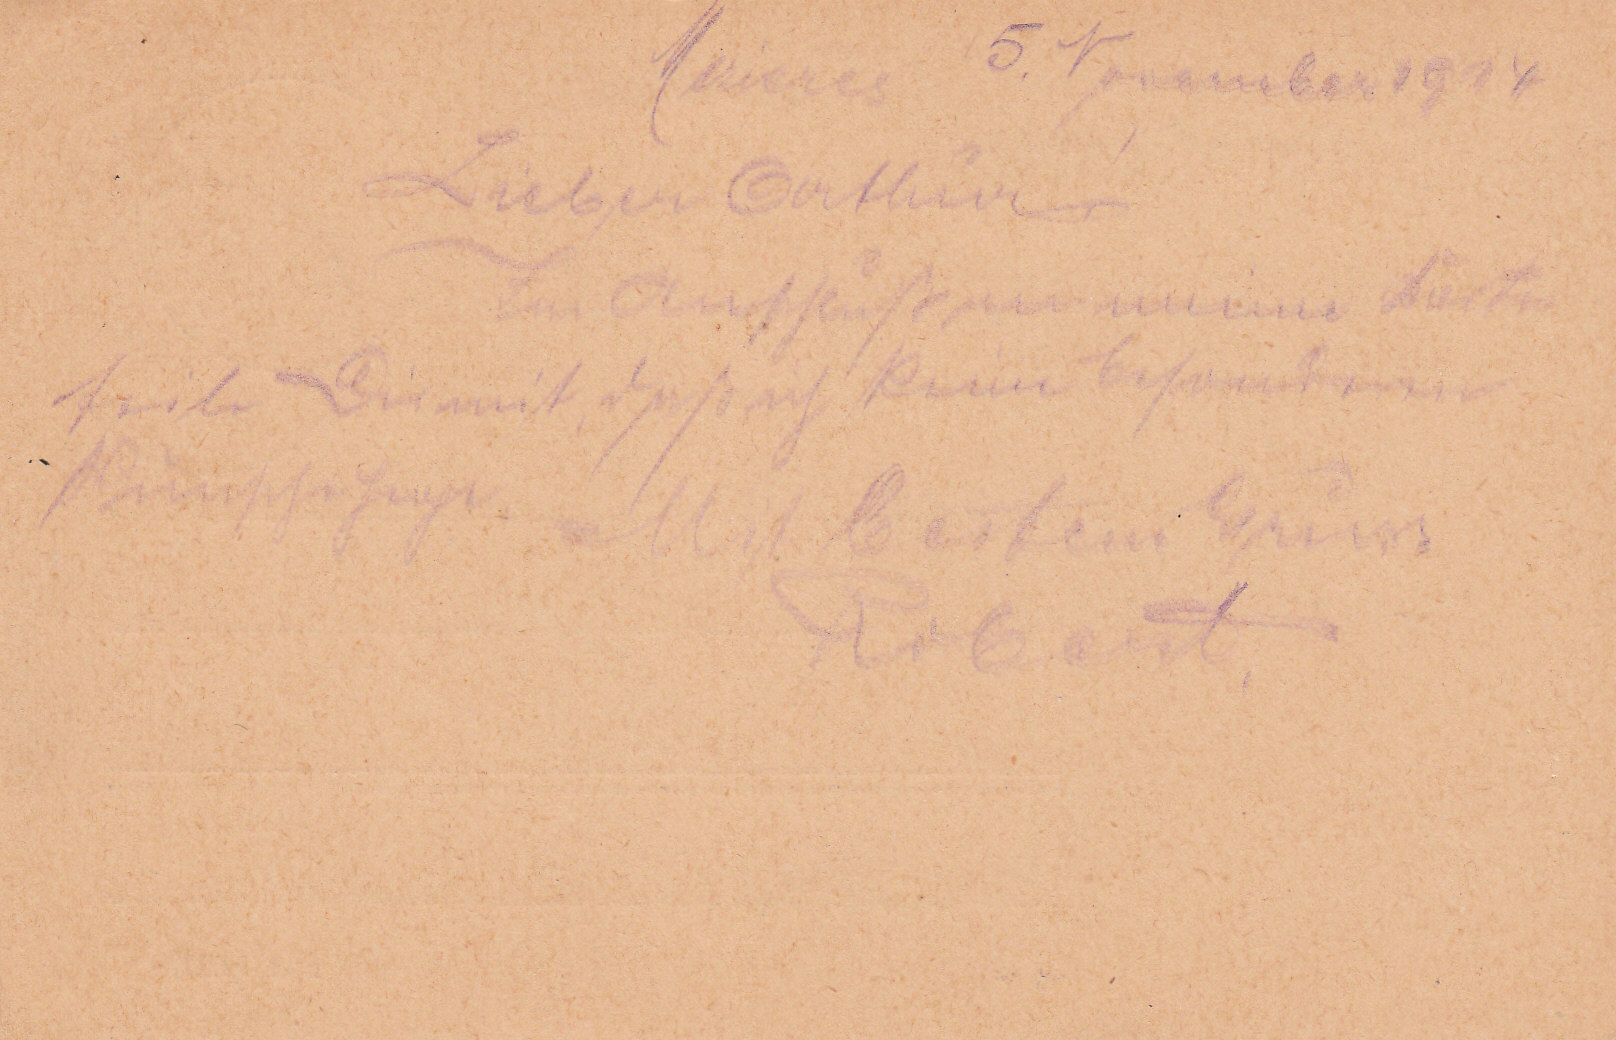 5. November 1914
Lieber Arthur
Im Anschluß an meine Karte
teile Dir mit, daß ich keine besonderen
Wünsche hege. Mit bestem Gruss
Robert.